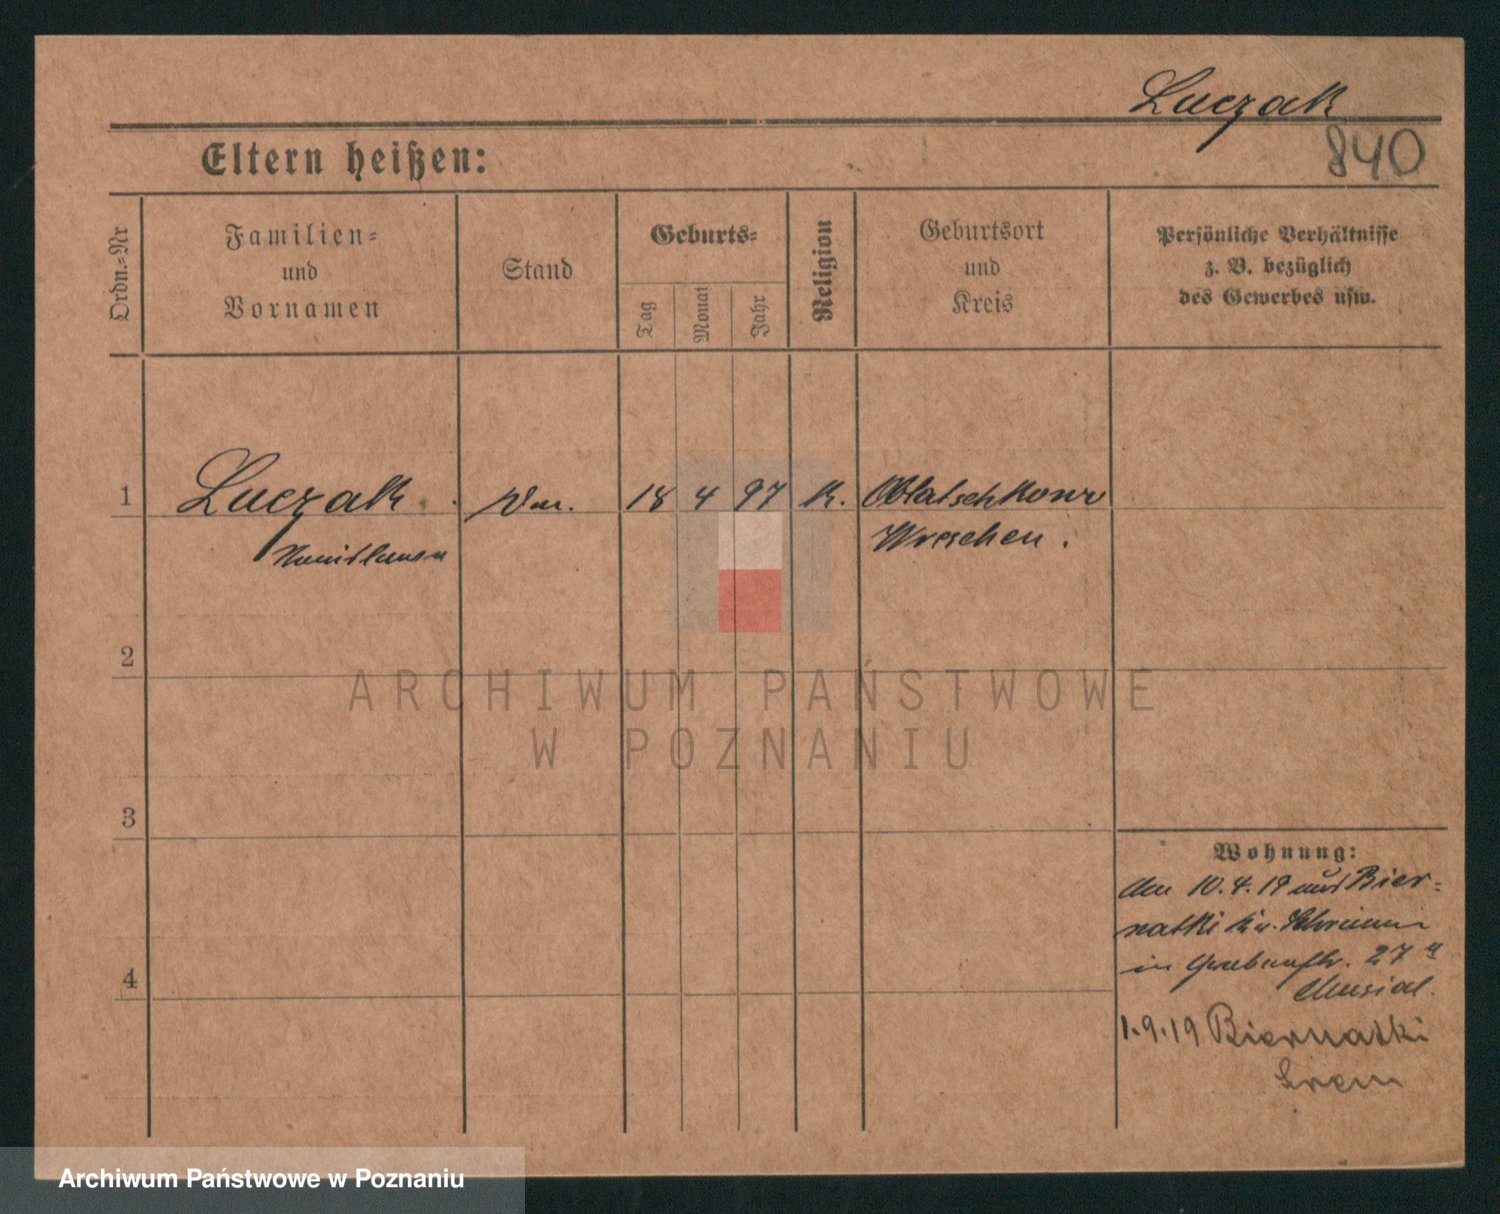 Luczak
840
Eltern heißen:
Ordn.=Nr
Familien=
und
Vornamen
Stand
Geburts=
Tag
Monat
Jahr
Religion
Geburtsort
und
Kreis
Persönliche Verhältnisse
z. B. bezüglich
des Gewerbes usw.
1 Luczak 18 4 97 K. Oblatschkowo
Wreschen.
2
3
4
Wohnung:
10.4.19 Bier=
natki Schrimm
in 27
Musial.
1.9.19 Biernatki
Srem
ARCHIWUM PAŃSTWOWE
W POZNANIU
Archiwum Państwowe w Poznaniu